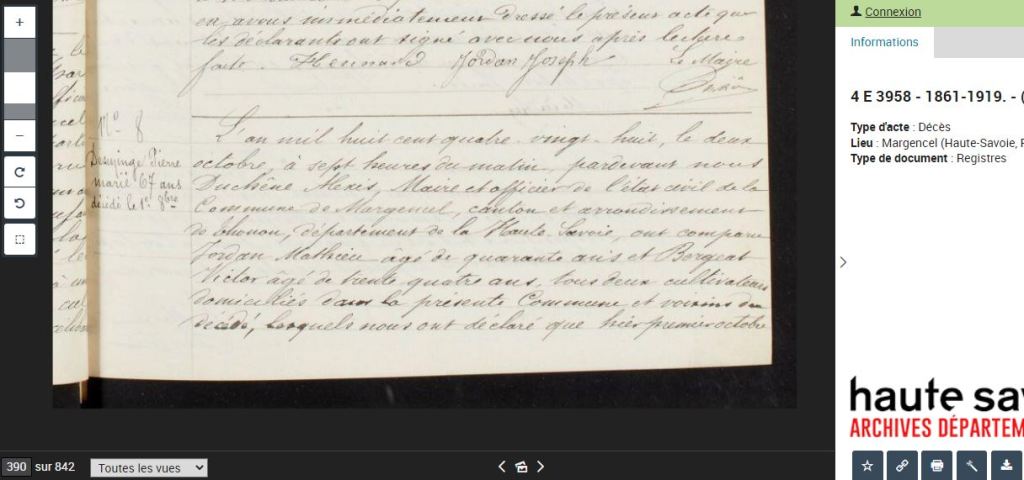 en avons immédiatement dressé le présent acte que
les déclarants ont signé avec nous après lecture
faite. Jordan Joseph Le Maire
No 8
Desuzinge Pierre
marié 67 ans
décédé le 1er 8bre
L'an mil huit cent quatre-vingt-huit, le deux
octobre, à sept heures du matin, pardevant nous
Duchêne Alexis, Maire et officier de l'état civil de la
Commune de Margencel, canton et arrondissement
de thonon, département de la Haute-Savoie, ont comparu
Jordan Mathieu âgé de quarante ans et Borgeat
Victor âgé de trente quatre ans, tous deux cultivateurs
domiciliés dans la présente Commune et voisins du
décédé, lesquels nous ont déclaré que hier premier octobre
390 sur 842
Toutes les vues
Connexion
Informations
4 E 3958 - 1861-1919. - (
Type d'acte : Décès
Lieu : Margencel (Haute-Savoie, F
Type de document : Registres
haute sav
ARCHIVES DÉPARTEM